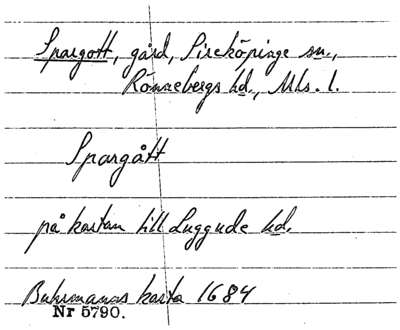 Spargott, gård, Sireköpinge sn.,
Rönnebergs hd., Mhs. l.
Spargått
på kartan till Luggude hd.
Buhrmanns karta 1684
Nr 5790.